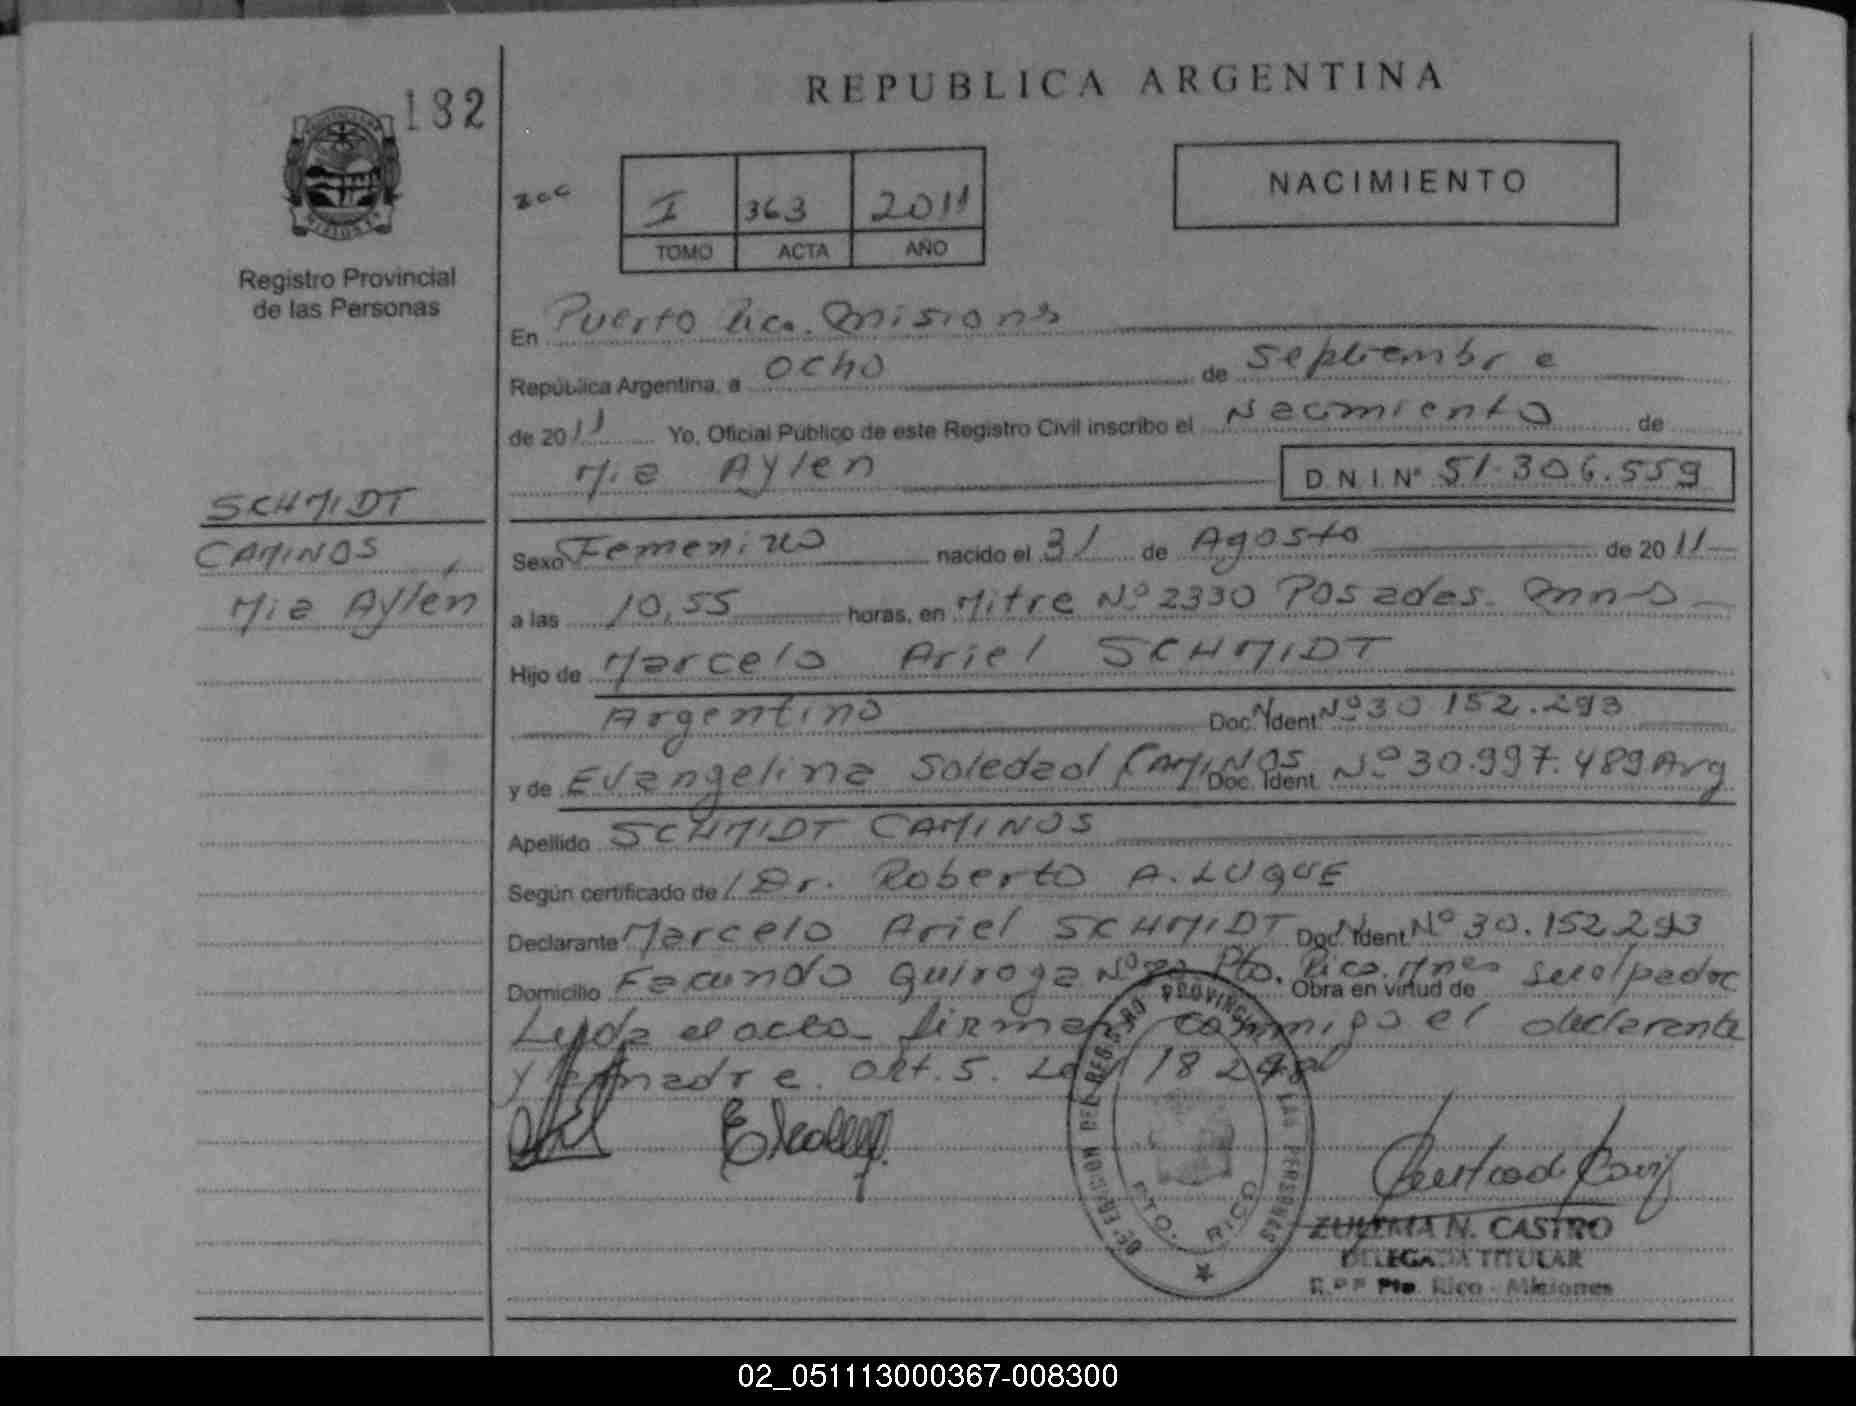 REPUBLICA ARGENTINA
182
I 363 2011
TOMO ACTA AÑO
NACIMIENTO
Registro Provincial
de las Personas
SCHMIDT
CAMINOS
Mia Aylén
En Puerto Rico. Misiones
República Argentina, a ocho de Septiembre
de 2011 Yo, Oficial Público de este Registro Civil inscribo el Nacimiento de
Mia Aylen D.N.I. Nº 51.306.559
Sexo Femenino nacido el 31 de Agosto de 2011
a las 10,55 horas, en Mitre Nº 2330 Posadas. Mnes
Hijo de Marcelo Ariel SCHMIDT
Argentino Doc. Ident. Nº 30 152.293
y de Evangelina Soledad CAMINOS Doc. Ident. Nº 30.997.489 Arg
Apellido SCHMIDT CAMINOS
Según certificado de Dr. Roberto A. LUQUE
Declarante Marcelo Ariel SCHMIDT Doc. Ident. Nº 30.152.293
Domicilio Facundo Quiroga Nº Pto. Rico. Mnes Obra en virtud de ser el padre
Leída el acta firman conmigo el declarante
y la madre. Art. 5. Ley 18248
DELEGACION DEL REGISTRO PROVINCIAL DE LAS PERSONAS
PTO. RICO
ZULEMA N. CASTRO
DELEGADA TITULAR
R.P.P. Pto. Rico - Misiones
02_051113000367-008300